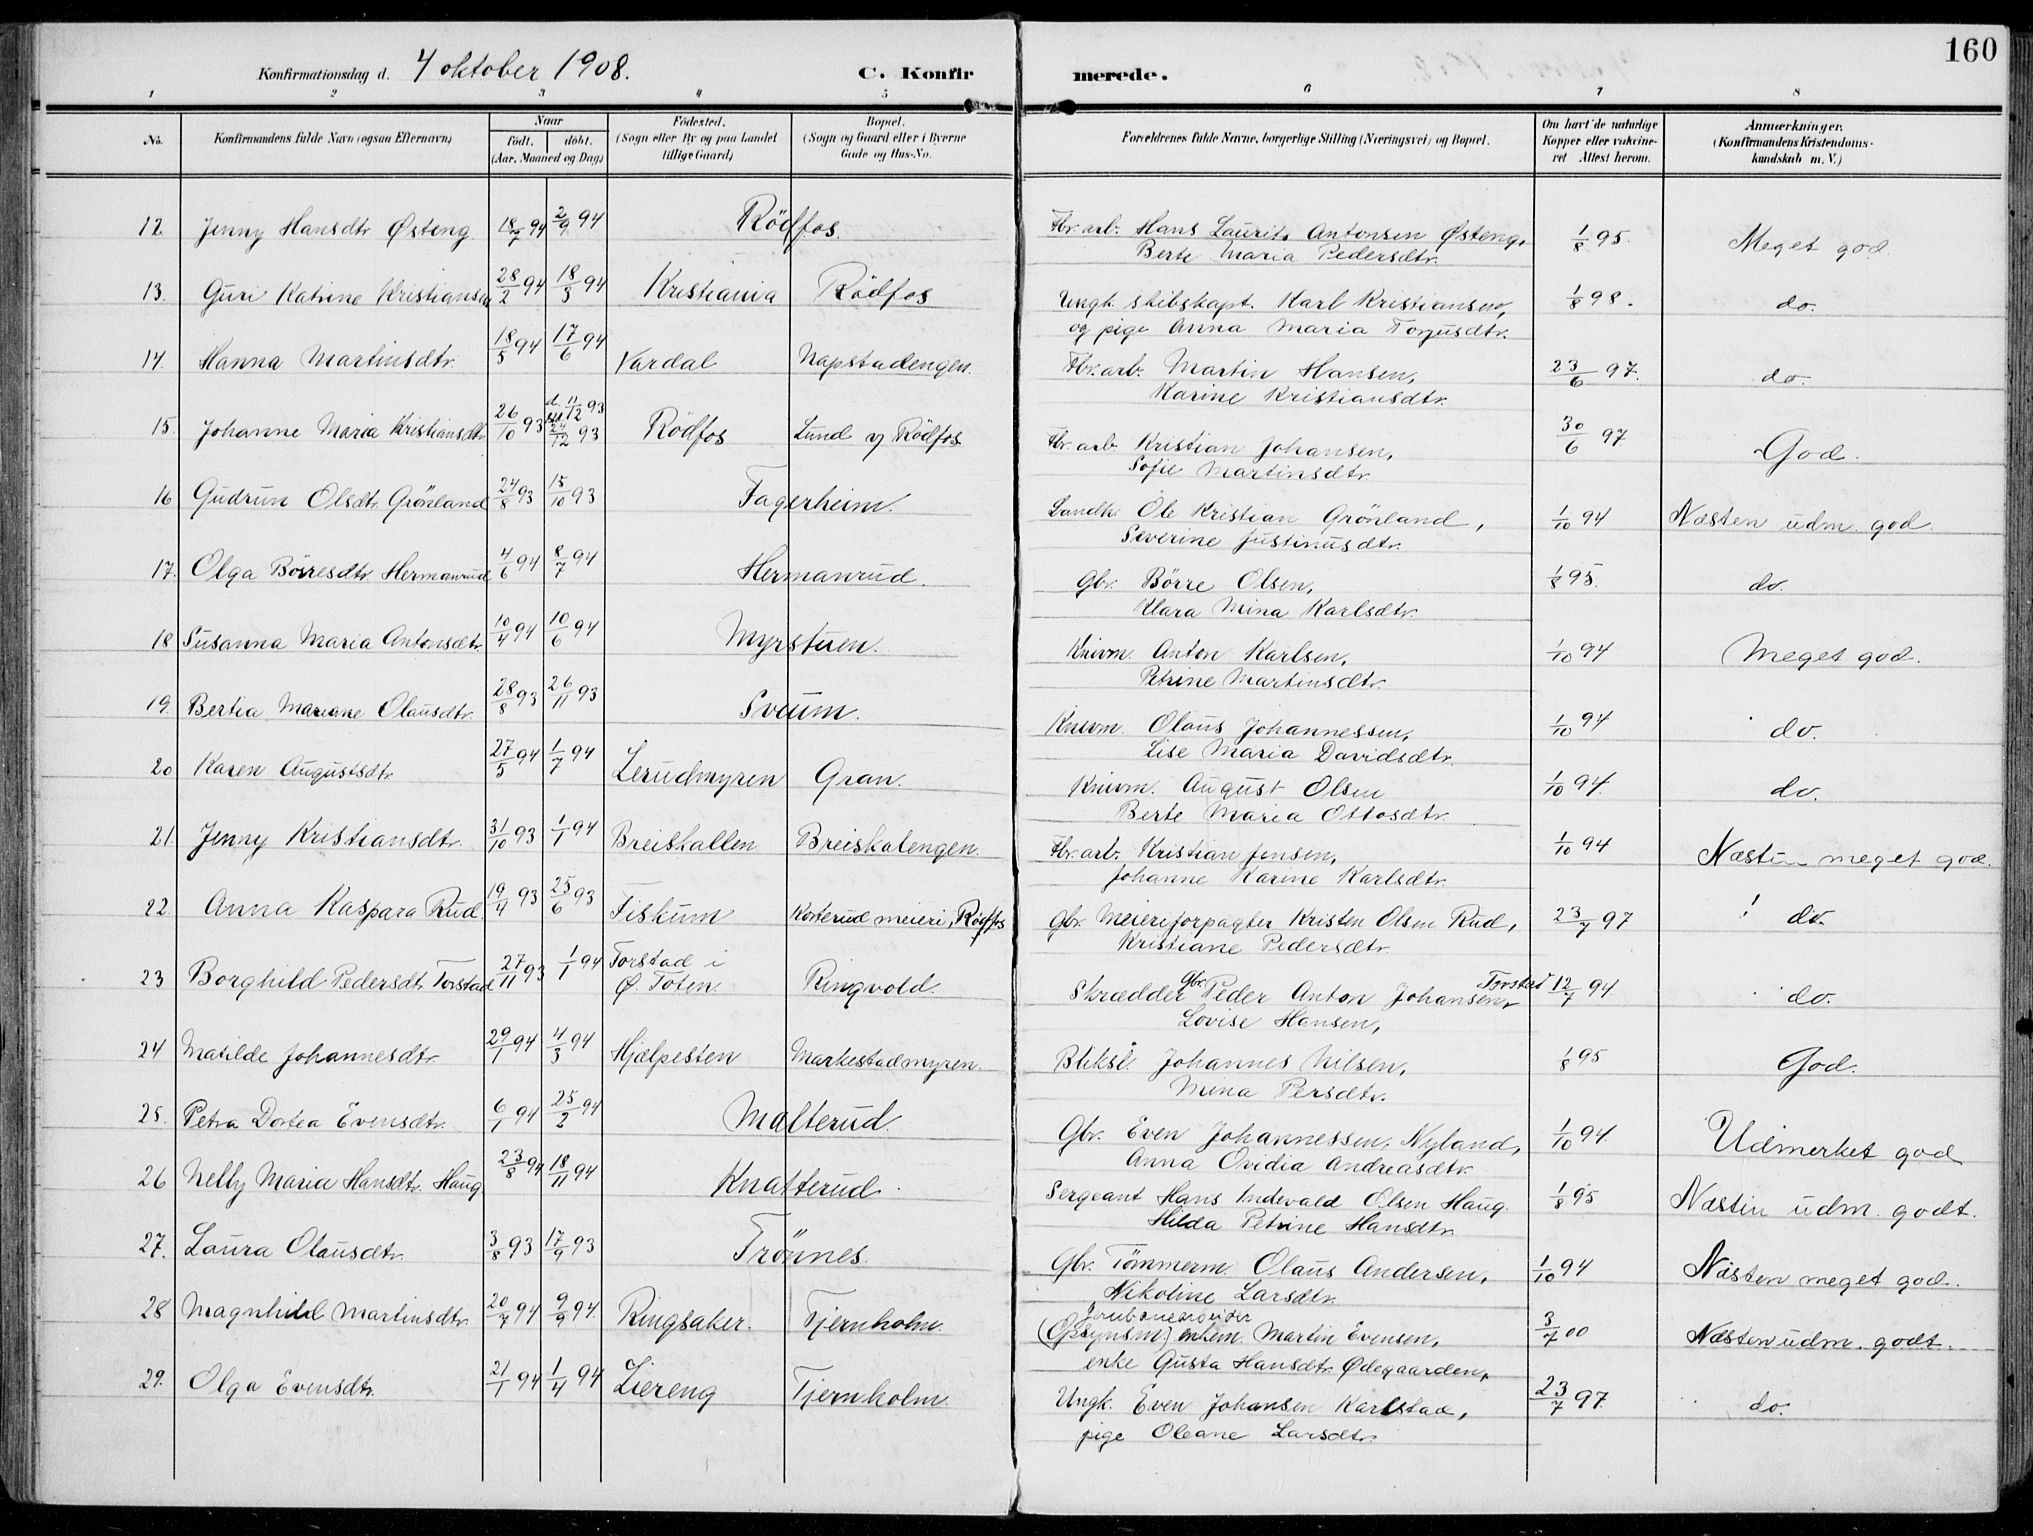 160
Konfirmationsdag d. 4 oktober 1908. C. Konfirmerede.
1 2 3 4 5 6 7 8
No. Konfirmandens fulde Navn (ogsaa Efternavn) Naar født. døbt. (Aar, Maaned og Dag) Fødested. (Sogn eller By og paa Landet tillige Gaard) Bopæl. (Sogn og Gaard eller i Byerne Gade og Hus-No. Forældrenes fulde Navne, borgerlige Stilling (Næringsvei) og Bopæl. Om havt de naturlige Kopper eller vakcineret Attest herom. Anmærkninger. (Konfirmandens Kristendomskundskab m. V.)
12. Jenny Hansdtr Østeng 18/7 94 2/9 94 Rödfos. Fbr. arb. Hans Laurits Antonsen Østeng, 1/8 95. Meget god
Berte Maria Pedersdtr.
13. Guri Katrine Kristiansen 28/2 94 18/3 94 Kristiania Rödfos Ungk. skibskapt. Karl Kristiansen, 1/8 98. do.
og pige Anna Maria Torjusdtr.
14. Hanna Martinsdtr. 18/5 94 17/6 94 Vardal Napstadengen. Fbr. arb. Martin Hansen, 23/6 97. do.
Karine Kristiansdtr.
15. Johanne Maria Kristiansdtr 26/10 93 d. 11/12 93 24/12 93 Rödfos Lund y Rödfos Fbr. arb. Kristian Johansen, 30/6 97 God.
Sofie Martinsdtr.
16 Gudrun Olsdtr. Grönland 24/8 93 15/10 93 Fagerheim. Landh. Ole Kristian Grönland, 1/10 94 Næsten udm. god.
Severine Justinusdtr.
17. Olga Börresdtr Hermanrud 4/6 94 8/7 94 Hermanrud. Gbr. Börre Olsen, 1/8 95. do.
Klara Mina Karlsdtr.
18 Susanna Maria Antonsdtr. 10/4 94 10/6 94 Myrstuen. Knivm. Anton Karlsen, 1/10 94 Meget god.
Petrine Martinsdtr.
19. Bertia Mariane Olausdtr. 28/8 93 26/11 93 Sveum. Knivm. Olaus Johannessen, 1/10 94 do.
Lise Maria Davidsdtr.
20 Karen Augustsdtr. 27/5 94 1/7 94 Lerudmyren Gran. Knivm. August Olsen 1/10 94. do.
Berte Maria Ottosdtr.
21. Jenny Kristiansdtr. 31/10 93 1/1 94 Breiskallen Breiskalengen. Fbr. arb. Kristian Jensen, 1/10 94 Næsten meget god.
Johanne Karine Karlsdtr.
22. Anna Kaspara Rud 19/4 93 25/6 93 Fiskum Korterud meieri, Rödfos Gbr. Meieriforpagter Kristen Olsen Rud, 23/7 97 do.
Kristiane Pedersdtr.
23 Borghild Pedersdt. Torstad 27/11 93 1/1 94 Torstad i Ø. Toten. Ringvold. Skrædder Gbr. Peder Anton Johansen, Torstad 12/7 94. do.
Lovise Hansen,
24 Matilde Johannesdtr. 29/1 94 4/3 94 Hjælpesten Markestadmyren. Bliksl. Johannes Nilsen, 1/8 95 God.
Mina Persdtr.
25. Petra Dortea Evensdtr. 6/1 94 25/2 94 Malterud. Gbr. Even Johannessen, Nyland, 1/10 94. Udmerket god
Anna Ovidia Andreasdtr.
26 Nelly Maria Hansdtr. Haug. 23/8 94 18/11 94 Knatterud. Sergeant Hans Indevald Olsen Haug. 1/8 95 Næsten udm. godt.
Hilda Petrine Hansdtr.
27. Laura Olausdtr. 3/8 93 17/9 93 Trönnes. Gbr. Tömmerm. Olaus Andersen, 1/10 94 Næsten meget god.
Nikoline Larsdtr.
28 Magnhild Martinsdtr. 20/7 94 9/9 94. Ringsaker. Tjernholm. Jernbanearbeider
(Opsynsm.) enkem. Martin Evensen, 3/7 00 Næsten udm. godt.
enke Gusta Hansdtr. Ødegaarden,
29. Olga Evensdtr. 21/1 94 1/4 94 Liereng Tjernholm. Ungk. Even Johansen Karlstad, 23/7 97 do.
pige Oleane Larsdtr.